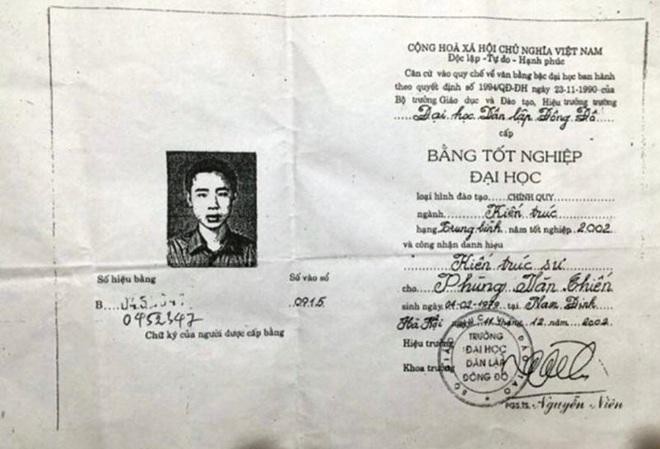 Số hiệu bằng
Số vào sổ
B
0915
0452347
Chữ ký của người được cấp bằng
CỘNG HOÀ XÃ HỘI CHỦ NGHĨA VIỆT NAM
Độc lập - Tự do - Hạnh phúc
Căn cứ vào quy chế về văn bằng bậc đại học ban hành
theo quyết định số 1994/QĐ-ĐH ngày 23-11-1990 của
Bộ trưởng Giáo dục và Đào tạo, Hiệu trưởng trường
Đại học Dân lập Đông Đô
cấp
BẰNG TỐT NGHIỆP
ĐẠI HỌC
loại hình đào tạo CHÍNH QUY
ngành Kiến trúc
hạng Trung bình năm tốt nghiệp 2002
và công nhận danh hiệu
Kiến trúc sư
cho Phùng Văn Chiến
sinh ngày 01-02-1979 tại Nam Định
Hà Nội ngày 11 tháng 12 năm 2002
Hiệu trưởng
Khoa trưởng
TRƯỜNG
ĐẠI HỌC
DÂN LẬP
ĐÔNG ĐÔ
PGS.TS. Nguyễn Niên